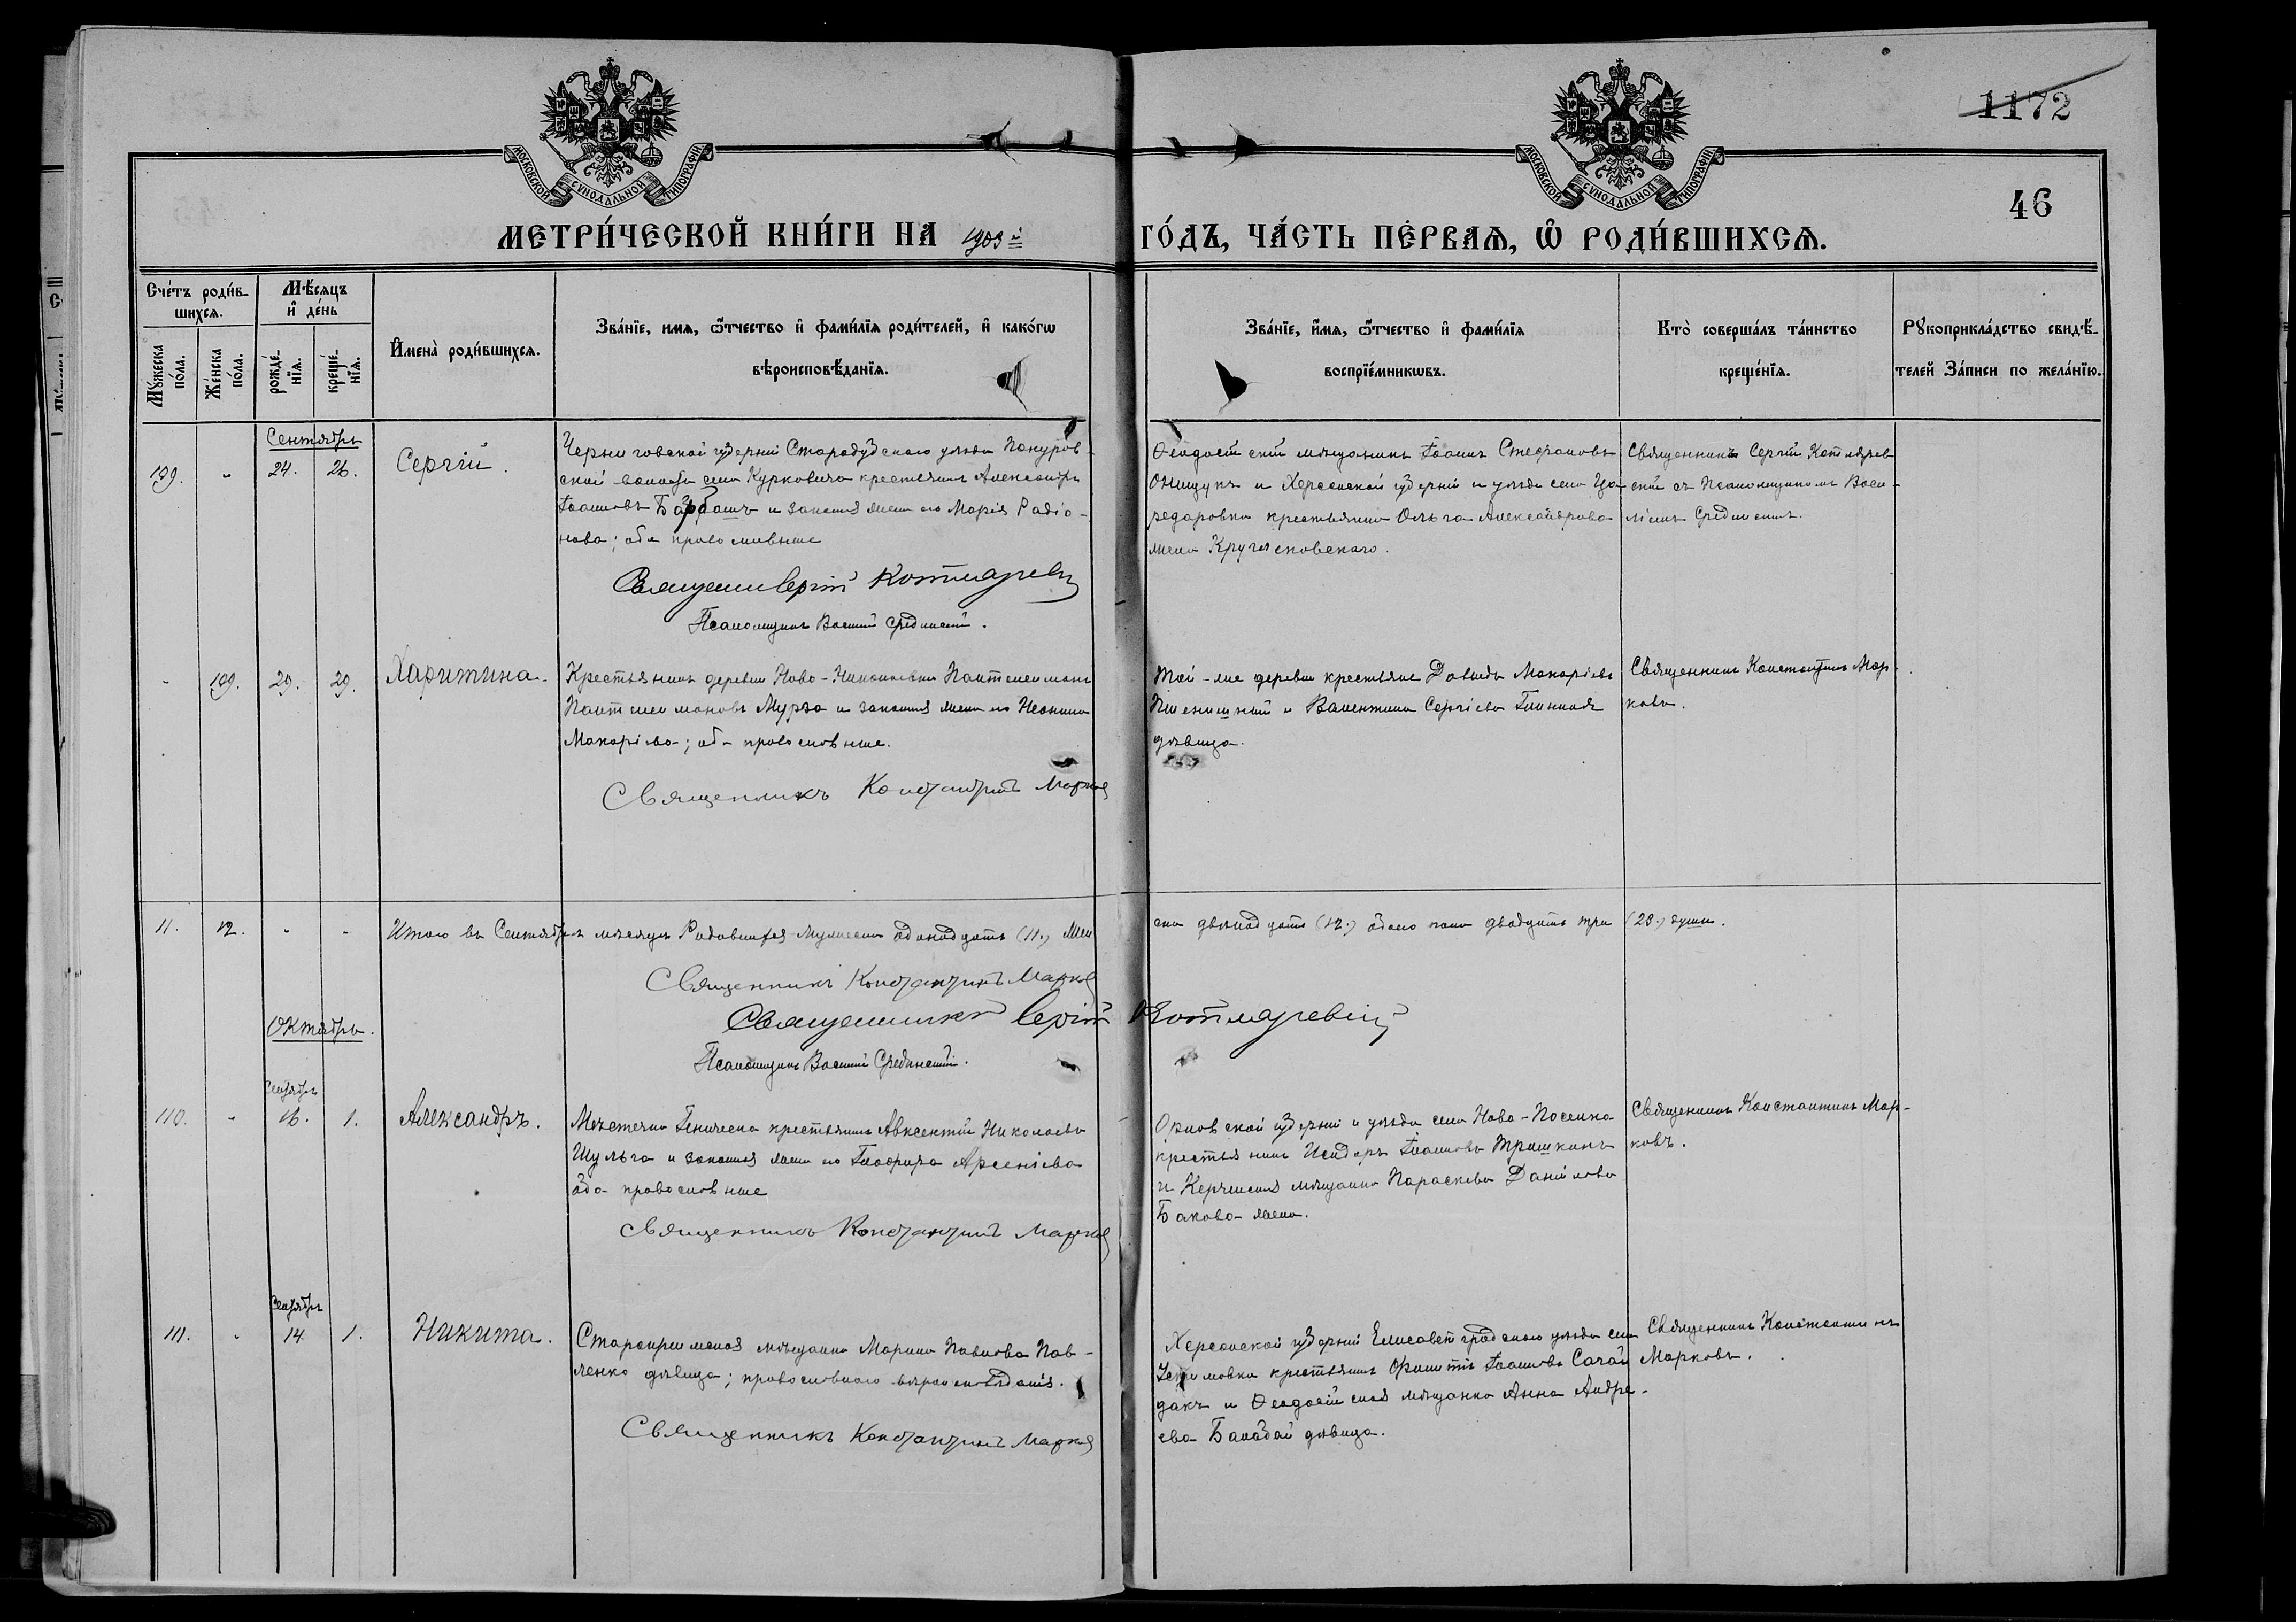 1172
46
МОСКОВСКОЙ СУНОДАЛЬНОЙ ТИПОГРАФІИ
МОСКОВСКОЙ СУНОДАЛЬНОЙ ТИПОГРАФІИ
МЕТРИ́ЧЕСКОЙ КНИ́ГИ НА 1903 й ГО́ДЪ, ЧА́СТЬ ПЕ́РВАѦ, Ѡ҆ РОДИ́ВШИХСѦ.
Сче́тъ роди́в-
шихсѧ.
Мѣ́сѧцъ
и҆ де́нь
И҆мена̀ роди́вшихсѧ.
Зва́нїе, имѧ, ѻ҆́тчество и҆ фами́лїѧ роди́телей, и҆ како́гѡ
вѣроисповѣ́данїѧ.
Зва́нїе, и҆́мѧ, ѻ҆́тчество и҆ фами́лїѧ
воспрїе́мникѡвъ.
Кто̀ соверша́лъ та́инство
креще́нїѧ.
Рꙋкоприкла́дство свидѣ́-
телей За́писи по жела́нїю.
Мꙋ́жеска
по́ла.
Же́нска
по́ла.
рожде́-
нїѧ.
креще́-
нїѧ.
Сентябрь
109. " 24. 26. Сергій.
Черниговской губерніи Стародубскаго уѣзда Понуров-
ской волости села Курковичъ крестьянинъ Александръ
Іоанновъ Барбашъ и законная жена его Марія Радіо-
нова; оба православные
Священникъ Сергій Котляревскій
Псаломщикъ Василій Срединскій.
Ѳеодосійскій мѣщанинъ Іоаннъ Стефановъ
Онищукъ и Херсонской губерніи и уѣзда села
крестьянка Ольга Александрова
жена
Священникъ Сергій Котлярев-
скій съ Псаломщикомъ Васи-
ліемъ Срединскимъ.
- 109. 29. 29. Харитина.
Крестьянинъ деревни Ново- Пантелеимонъ
Пантелеимоновъ Мурза и законная жена его Неонила
Макаріева; оба православные.
Священникъ Константинъ Марковъ
Той-же деревни крестьяне Давидъ Макаріевъ
Пшеничный и Валентина Сергіева
дѣвица.
Священникъ Константинъ Мар-
ковъ.
11. 12. " " Итого въ Сентябрѣ мѣсяцѣ Родившихся Мужеска одинадцать (11.) Жен
ска двѣнадцать (12.) обоего пола двадцать три (23.) души.
Священникъ Константинъ Марковъ
Священникъ Сергій Котляревскій
Псаломщикъ Василій Срединскій.
Октябрь.
Сентябрь
110. " 16. 1. Александръ.
Мѣстечка Геническа крестьянинъ Авксентій Николаевъ
Шульга и законная жена его Глафира Арсеніева
оба православные
Священникъ Константинъ Марковъ
Орловской губерніи и уѣзда села Ново-Поселка
крестьянинъ Исидоръ Іоанновъ Тришкинъ
и Керченская мѣщанка Параскева Даніилова
Бакова жена.
Священникъ Константинъ Мар-
ковъ.
Сентябрь
111. " 14. 1. Никита.
Старокрымская мѣщанка Марина Павлова Пав-
ленко дѣвица; православнаго вѣроисповѣданія.
Священникъ Константинъ Марковъ
Херсонской губерніи Елисаветградскаго уѣзда села
крестьянинъ Филиппъ Іоанновъ Сагай
дакъ и Ѳеодосійская мѣщанка Анна Андре-
ева Балабай дѣвица.
Священникъ Константинъ
Марковъ.